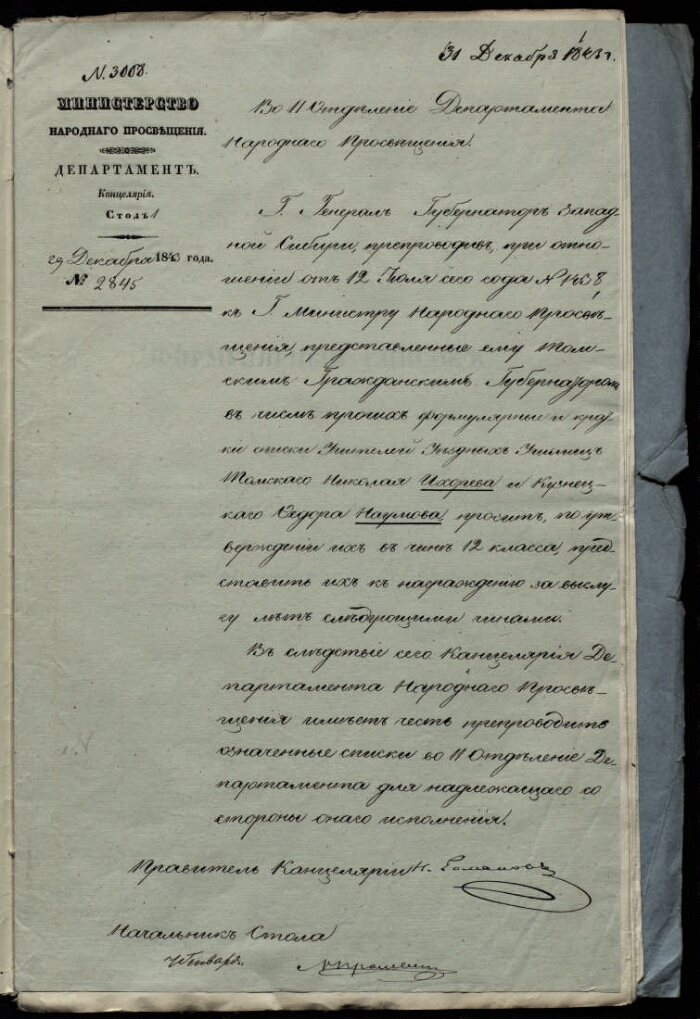 31 Декабря 1843 г.
N. 3068.
МИНИСТЕРСТВО
НАРОДНАГО ПРОСВѢЩЕНІЯ.
ДЕПАРТАМЕНТЪ.
Канцелярія.
Столъ 1
29 Декабря 1843 года.
№ 2845
Во II Отдѣленіе Департамента
Народнаго Просвѣщенія.
Г. Генералъ Губернаторъ Запад-
ной Сибири, препроводивъ, при отно-
шеніи отъ 12 Іюля сего года N
къ Г. Министру Народнаго Просвѣ-
щенія, представленные ему Том-
скимъ Гражданскимъ Губернаторомъ
въ числѣ прочихъ формулярные и крат-
кіе списки Учителей Уѣздныхъ Училищъ
Томскаго Николая и Кузнец-
каго Ѳедора Наумова, проситъ, по ут-
вержденіи ихъ въ чинѣ 12 класса, пред-
ставить ихъ къ награжденію за выслу-
гу лѣтъ слѣдующими чинами.
Въ слѣдствіе сего Канцелярія Де-
партамента Народнаго Просвѣ-
щенія имѣетъ честь препроводить
означенные списки во II Отдѣленіе Де-
партамента для надлежащаго со
стороны онаго исполненія.
Правитель Канцеляріи
Начальникъ Стола
Января.